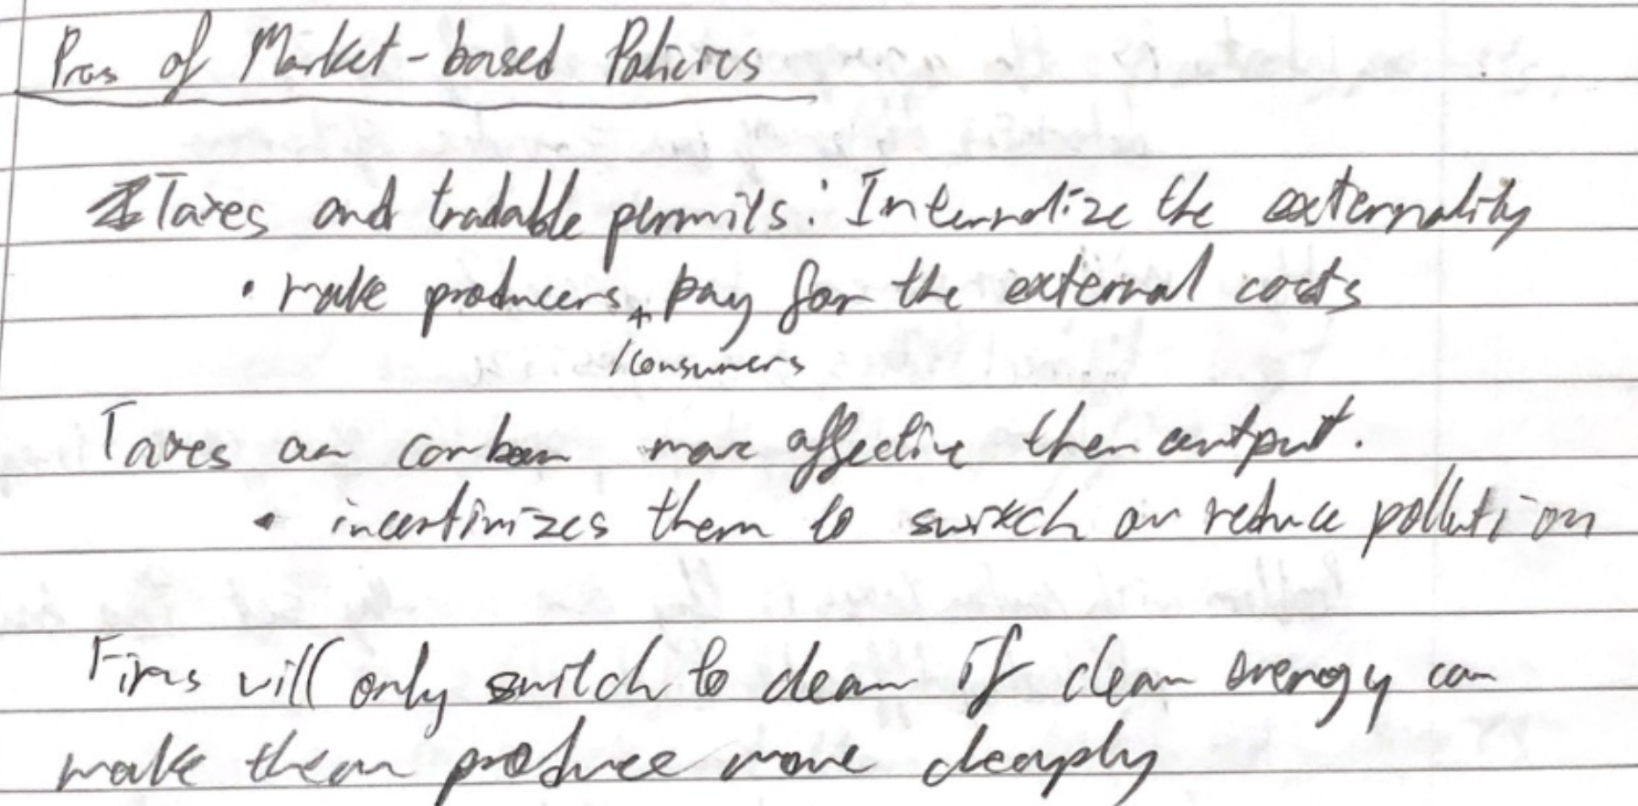 Pros of Market-based Policies
Taxes and tradable permits: Internalize the externality
• make producers pay for the external costs
/consumers
Taxes on carbon more affective then output.
• incentivizes them to switch or reduce pollution
Firms will only switch to clean if clean energy can
make them produce more cleaply